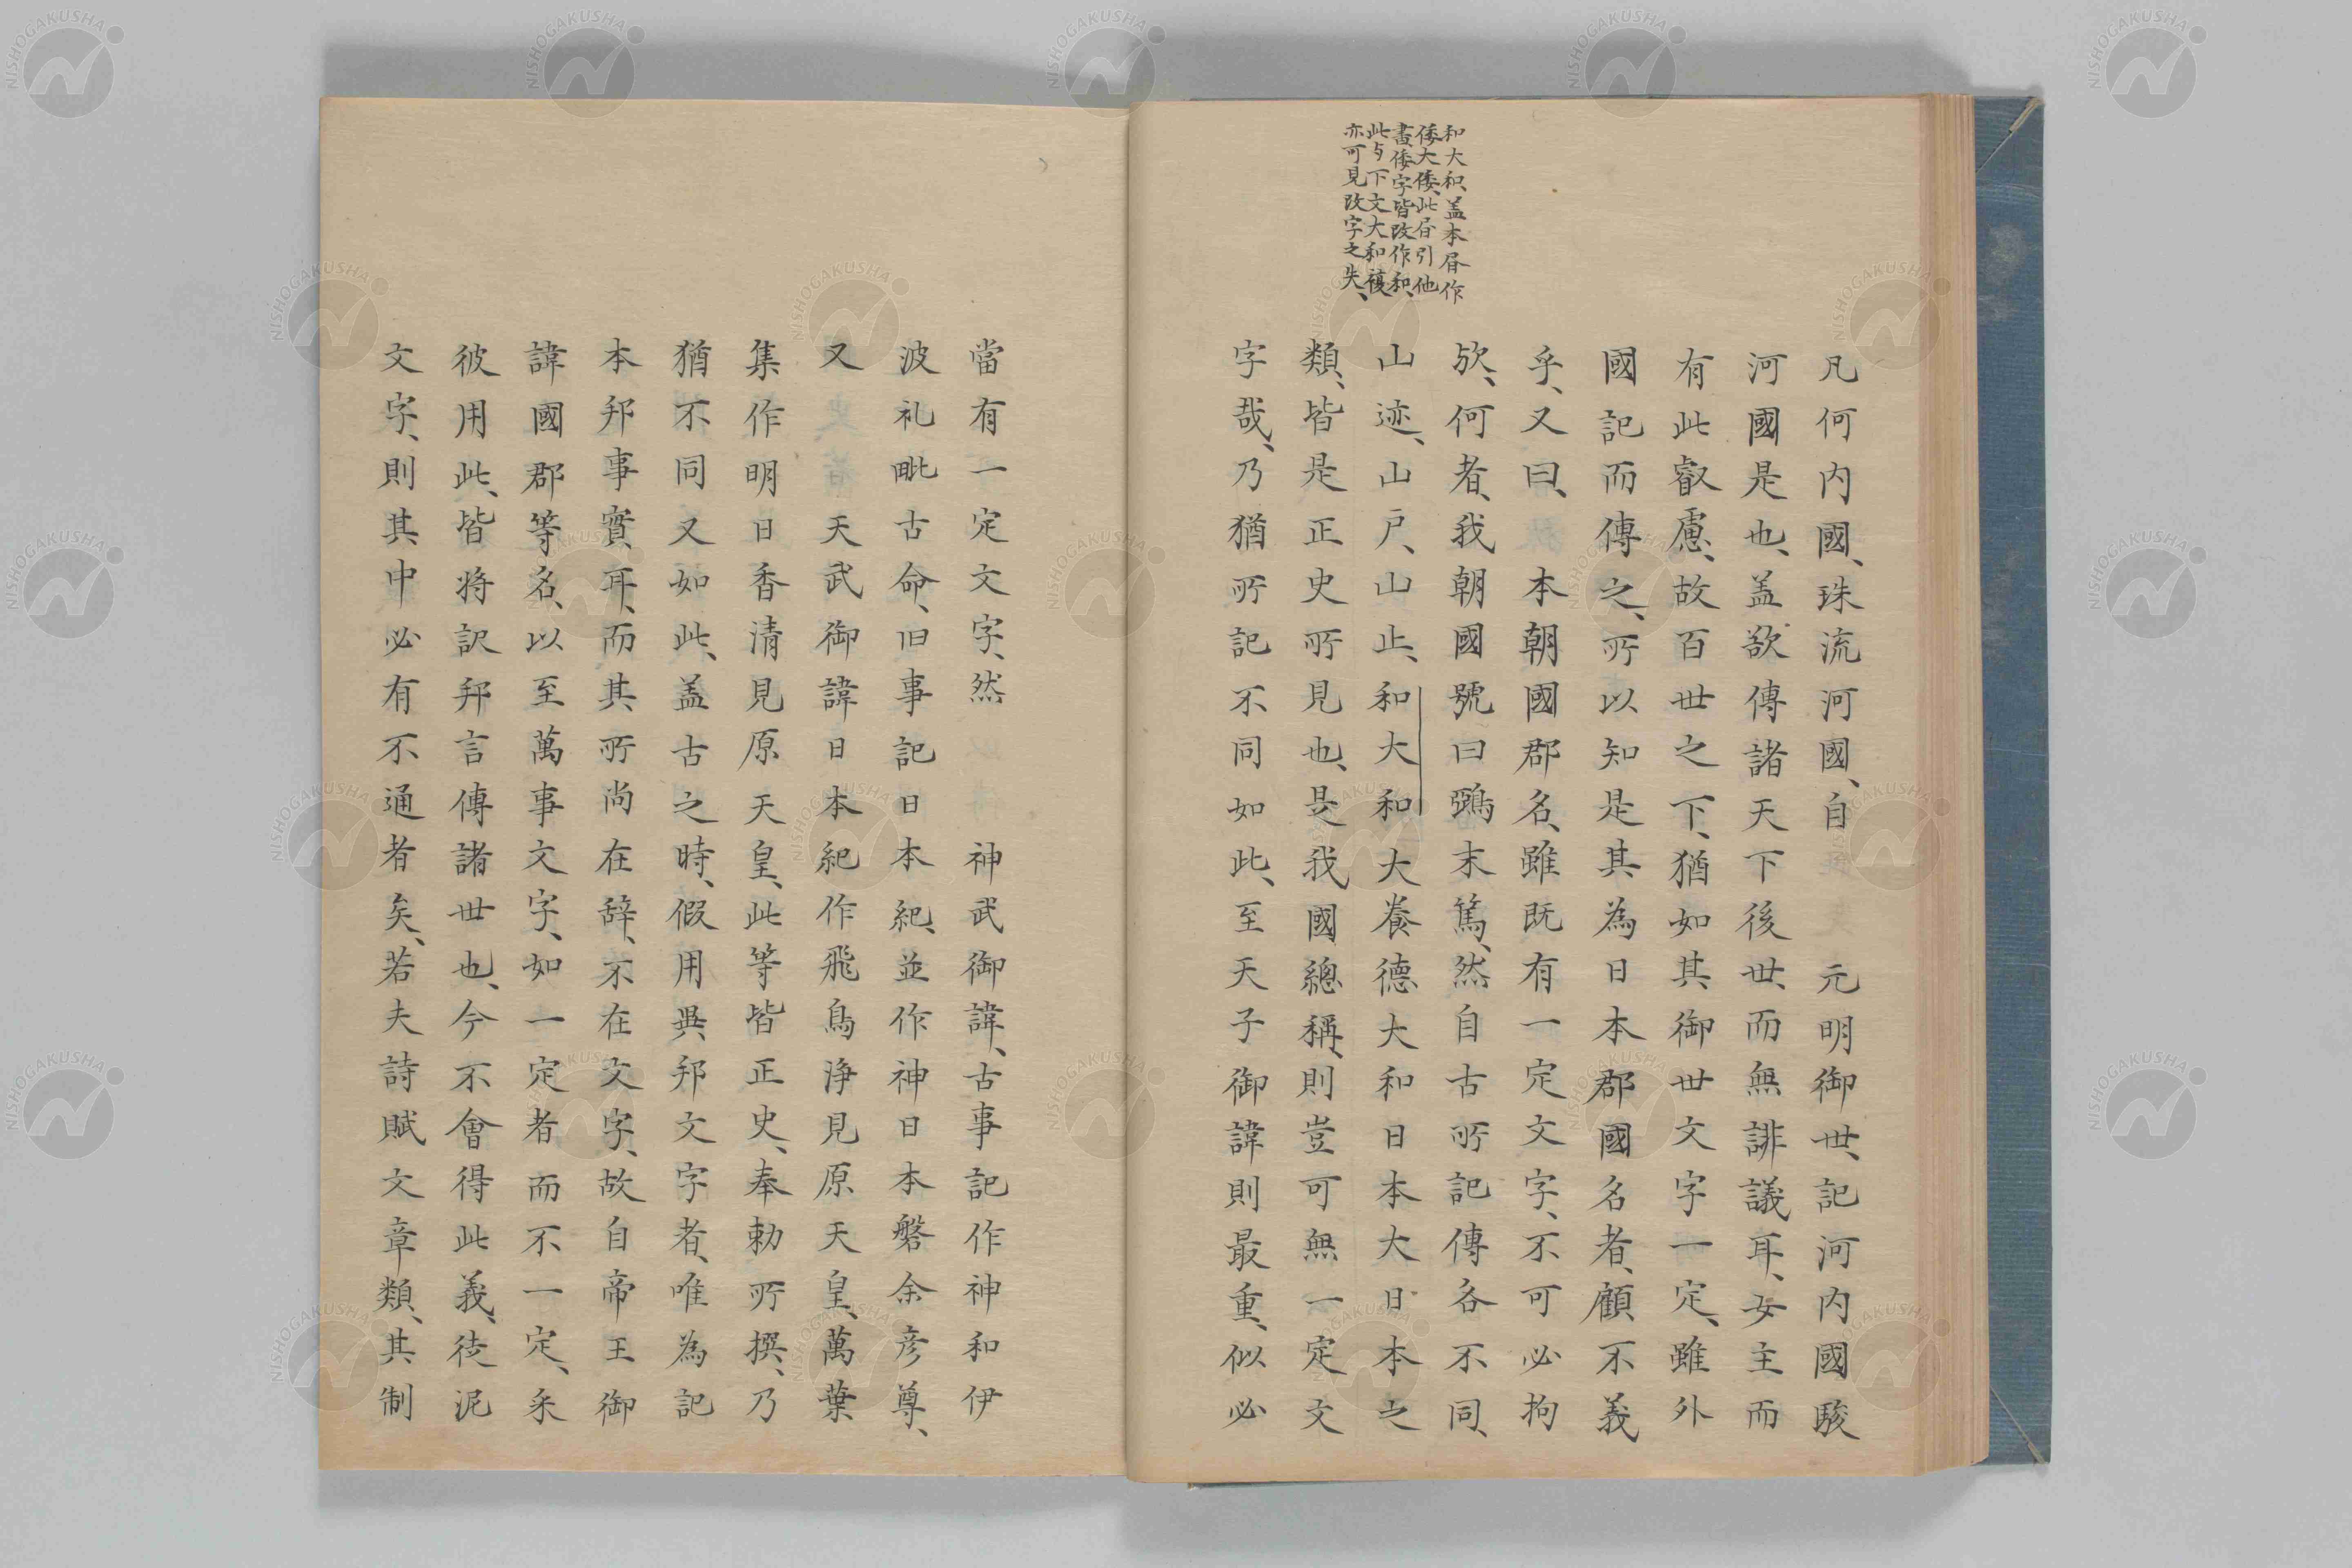 和大和、盖本昬作
倭大倭、此昬引他
書倭字皆改作和、
此与下文大和複
亦可見改字之失、
凡何内國、珠流河國、自　元明御世、記河内國駿
河國是也、盖欲傳諸天下後世、而無誹議耳、女主而
有此叡慮、故百世之下、猶如其御世文字一定、雖外
國記而傳之、所以知是其為日本郡國名者、顧不義
乎、又曰、本朝國郡名、雖既有一定文字、不可必拘
欤、何者、我朝國號曰鵶末篤、然自古所記傳各不同、
山迹、山戸、山止、和大和大養德大和日本大日本之
類、皆是正史所見也、是我國總稱、則豈可無一定文
字哉、乃猶所記不同如此、至天子御諱則最重、似必
當有一定文字、然　　神武御諱、古事記作神和伊
波礼毗古命、旧事記日本紀、並作神日本磐余彦尊、
又　天武御諱日本紀作飛鳥浄見原天皇、萬葉
集作明日香清見原天皇、此等皆正史、奉勅所撰、乃
猶不同又如此、盖古之時、假用異邦文字者、唯為記
本邦事實耳、而其所尚在辞、不在文字、故自帝王御
諱國郡等名、以至萬事文字、如一定者而不一定、采
彼用此、皆将訳邦言傳諸世也、今不會得此義、徒泥
文字、則其中必有不通者矣、若夫詩賦文章類、其制
NISHOGAKUSHA